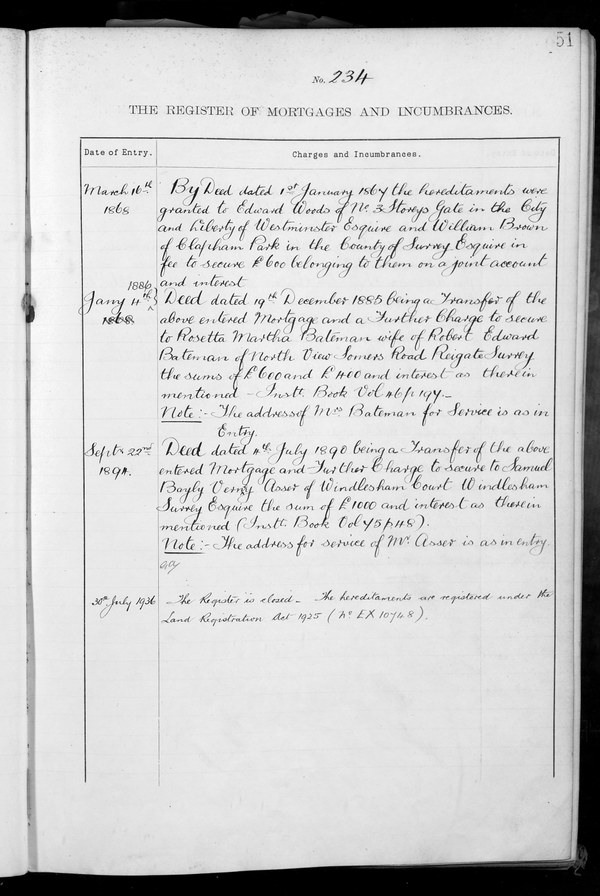 51
No. 234
THE REGISTER OF MORTGAGES AND INCUMBRANCES.
Date of Entry.
Charges and Incumbrances.
March 16th 1868
By Deed dated 1st January 1867 the hereditaments were
granted to Edward Woods of No. 3 Storeys Gate in the City
and Liberty of Westminster Esquire and William Brown
of Clapham Park in the County of Surrey Esquire in
fee to secure £600 belonging to them on a joint account
and interest
1886
Jany 4th
1868
Deed dated 19th December 1885 being a Transfer of the
above entered Mortgage and a Further Charge to secure
to Rosetta Martha Bateman wife of Robert Edward
Bateman of North View Somers Road Reigate Surrey
the sums of £600 and £400 and interest as therein
mentioned - Instt. Book Vol 46 p 197.-
Note:- The address of Mrs. Bateman for Service is as in
Entry.
Septr 22nd
1894.
Deed dated 4th July 1890 being a Transfer of the above
entered Mortgage and Further Charge to secure to Samuel
Bayly Verney Asser of Windlesham Court Windlesham
Surrey Esquire the sum of £1000 and interest as therein
mentioned (Instt. Book Vol 75 p 48).
Note:- The address for service of Mr. Asser is as in entry.
30th July 1936
The Register is closed - The hereditaments are registered under the
Land Registration Act 1925 (No EX 10748).